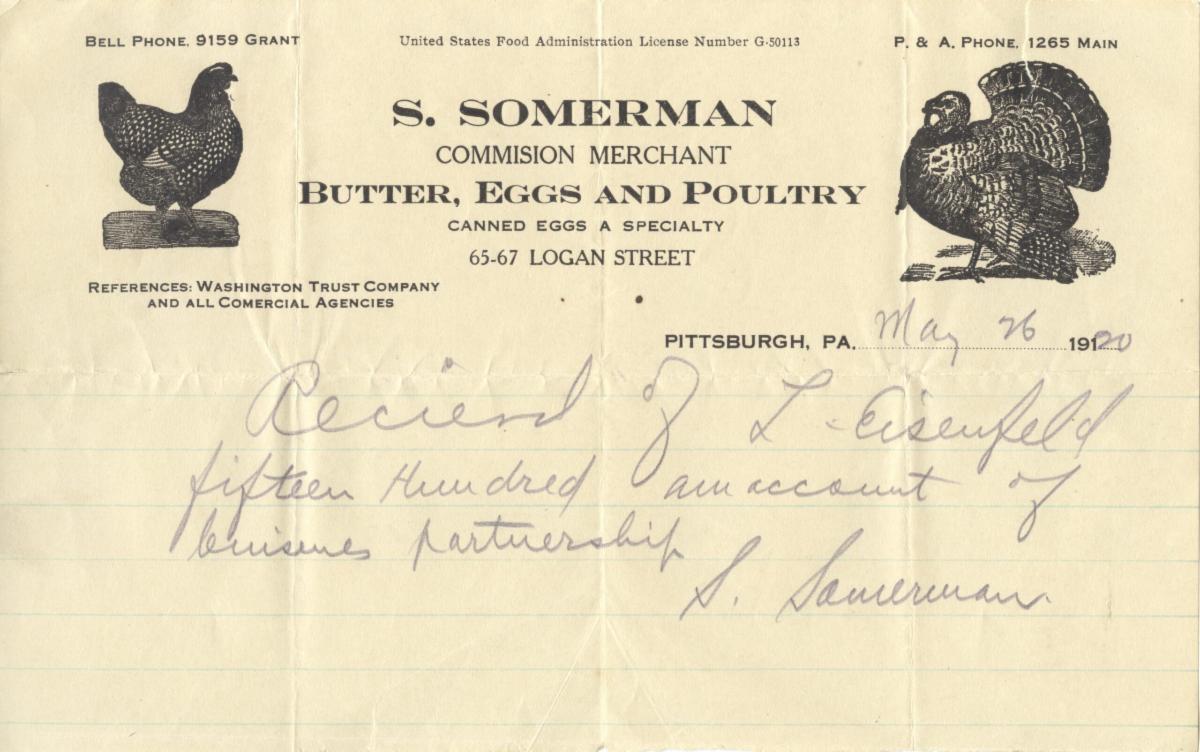 BELL PHONE, 9159 GRANT
United States Food Administration License Number G-50113
P. & A. PHONE, 1265 MAIN
S. SOMERMAN
COMMISION MERCHANT
BUTTER, EGGS AND POULTRY
CANNED EGGS A SPECIALTY
65-67 LOGAN STREET
REFERENCES: WASHINGTON TRUST COMPANY
AND ALL COMERCIAL AGENCIES
PITTSBURGH, PA. May 26 1920
Recieved of L Eisenfeld
fifteen Hundred am account of
buisenes partnership
S. Somerman.